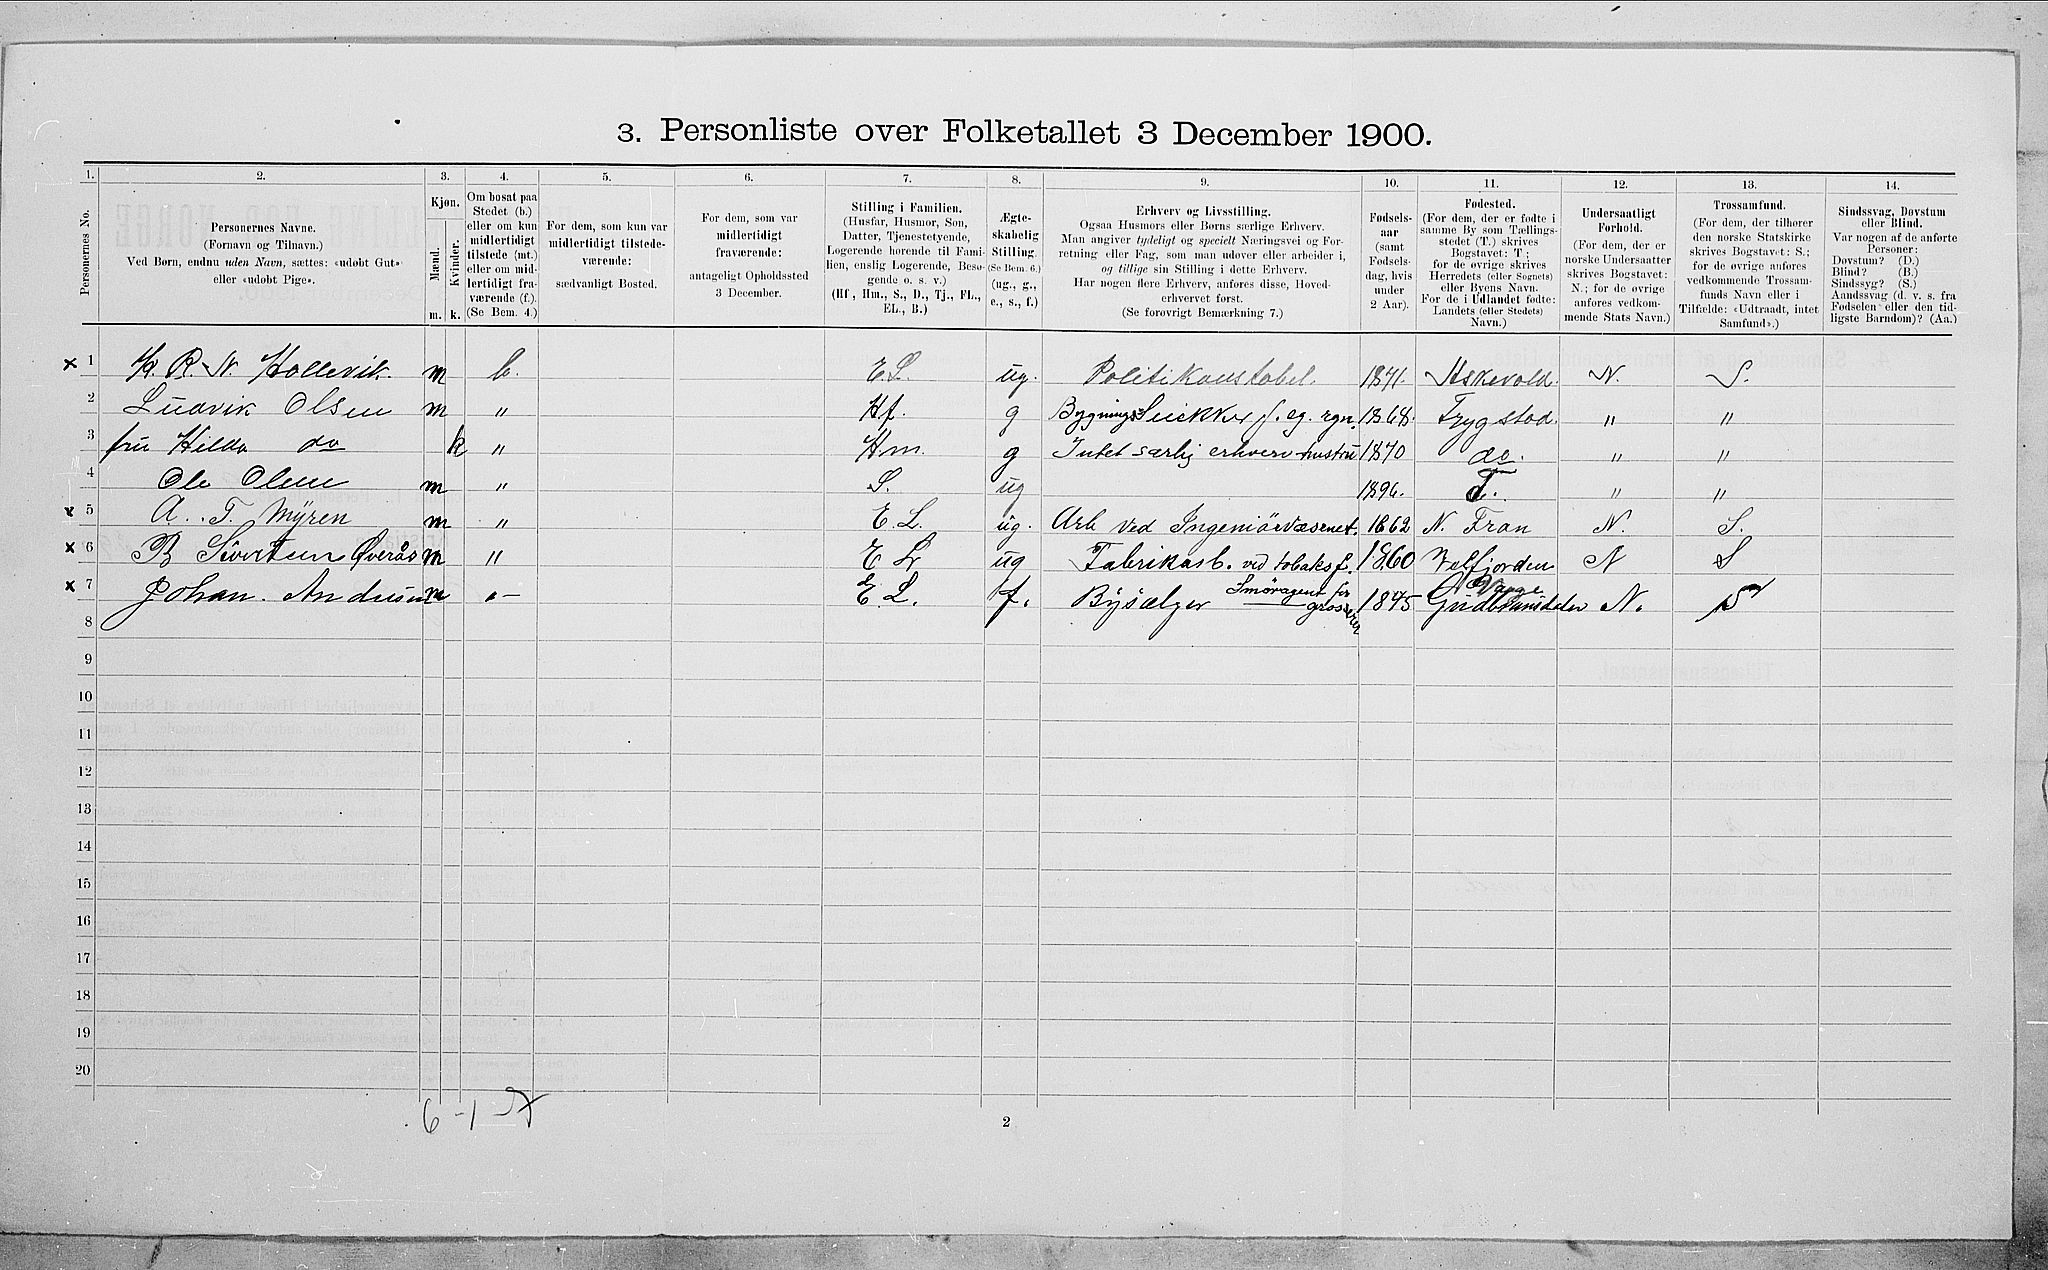 3. Personliste over Folketallet 3 December 1900.
1. 2. 3. 4. 5. 6. 7. 8. 9. 10. 11. 12. 13. 14.
Personernes No.
Personernes Navne.
(Fornavn og Tilnavn.)
Ved Børn, endnu uden Navn, sættes: «udobt Gut»
eller «udobt Pige».
Kjøn.
Mænd.
Kvinder.
m. k.
Om bosat paa
Stedet (b.)
eller om kun
midlertidigt
tilstede (mt.)
eller om mid-
lertidigt fra-
værende (f.).
(Se Bem. 4.)
For dem, som kun var
midlertidigt tilstede-
værende:
sædvanligt Bosted.
For dem, som var
midlertidigt
fraværende:
antageligt Opholdssted
3 December.
Stilling i Familien.
(Husfar, Husmor, Søn,
Datter, Tjenestetyende,
Logerende hørende til Fami-
lien, enslig Logerende, Besø-
gende o. s. v.)
(Hf., Hm., S., D., Tj., FL.,
EL., B.)
Ægte-
skabelig
Stilling.
(Se Bem. 6.)
(ug., g.,
e., s., f.)
Erhverv og Livsstilling.
Ogsaa Husmors eller Børns særlige Erhverv.
Man angiver tydeligt og specielt Næringsvei og For-
retning eller Fag, som man udover eller arbeider i,
og tillige sin Stilling i dette Erhverv.
Har nogen flere Erhverv, anføres disse, Hoved-
erhvervet først.
(Se forøvrigt Bemærkning 7.)
Fødsels-
aar
(samt
Fødsels-
dag, hvis
under
2 Aar).
Fødested.
(For dem, der er fødte i
samme By som Tællings-
stedet (T.) skrives
Bogstavet: T;
for de øvrige skrives
Herredets (eller Sognets)
eller Byens Navn.
For de i Udlandet fødte:
Landets (eller Stedets)
Navn.)
Undersaatligt
Forhold.
(For dem, der er
norske Undersaatter
skrives Bogstavet:
N.; for de øvrige
anføres vedkom-
mende Stats Navn.)
Trossamfund.
(For dem, der tilhører
den norske Statskirke
skrives Bogstavet: S.;
for de øvrige anføres
vedkommende Trossam-
funds Navn eller i
Tilfælde: «Udtraadt, intet
Samfund».)
Sindssvag, Døvstum
eller Blind.
Var nogen af de anførte
Personer:
Døvstum? (D.)
Blind? (B.)
Sindssyg? (S.)
Aandssvag (d. v. s. fra
Fødselen eller den tid-
ligste Barndom)? (Aa.)
x 1 R. N. Hollevik. m b. E.L. ug. Politikonstabel. 1871. Askevold. N. S.
2 Ludvik Olsen m " Hf. g Bygnings Snikker f. eg. rgn. 1868. Trygstad. " "
3 fru Hilda do k " Hm. g Intet særlig erhverv hustru 1870 do. " "
4 Ole Olsen m " S. ug 1896. T. " "
x 5 A. T. Myren m " E.L. ug. Arb ved Ingeniörvæsenet. 1862 N. Fron N. S.
x 6 B Sivertsen Øverås m " E L ug Fabrikarb. ved tobaksf. 1860 Velfjorden N S
x 7 Johan. Andersen m "- E.L. f. Bysælger Smöragent for grosserer 1845 Vaage Gudbransdalen N. S
8
9
10
11
12
13
14
15
16
17
18
19
20
6 - 1
2